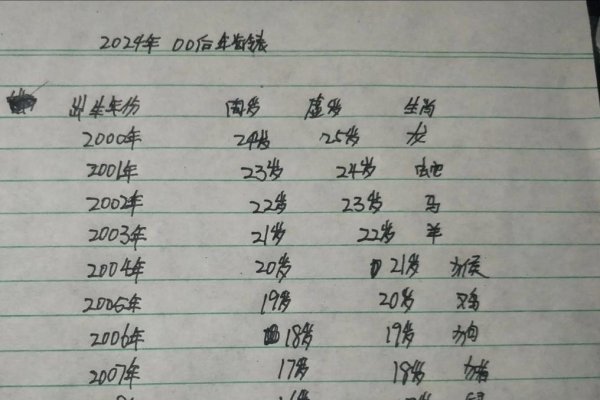 2024年 00后年龄表
出生年份 周岁 虚岁 生肖
2000年 24岁 25岁 龙
2001年 23岁 24岁 蛇
2002年 22岁 23岁 马
2003年 21岁 22岁 羊
2004年 20岁 21岁 猴
2005年 19岁 20岁 鸡
2006年 18岁 19岁 狗
2007年 17岁 18岁 猪